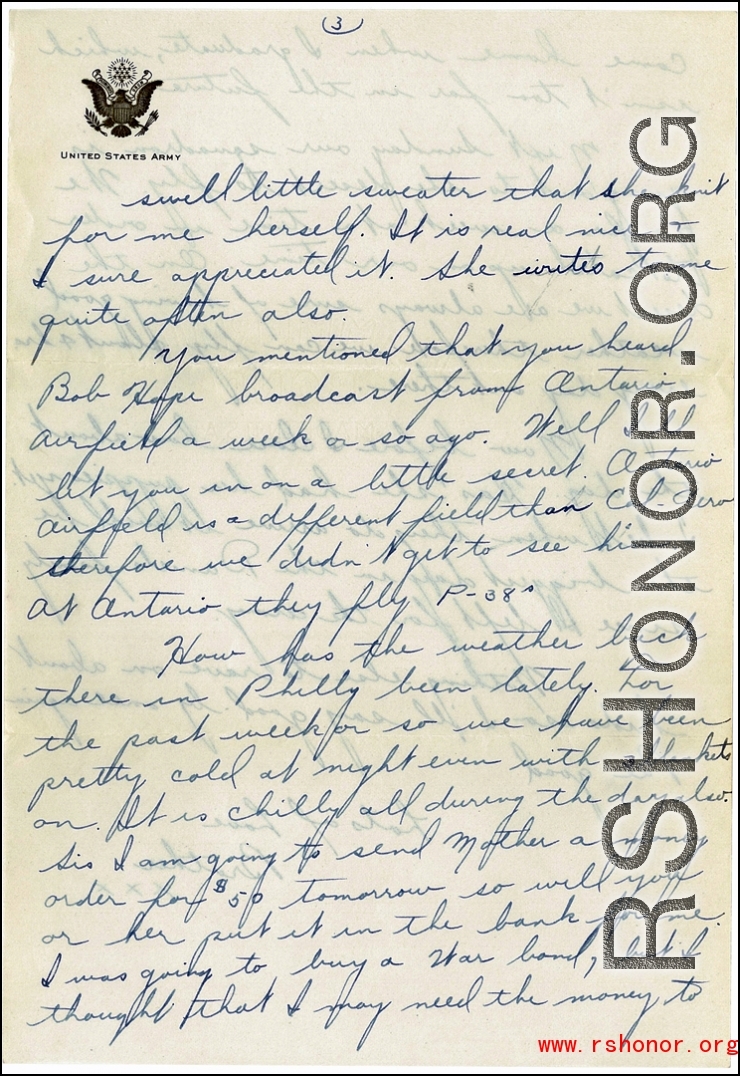 3
UNITED STATES ARMY
swell little sweater that she knit
for me herself. It is real nice
I sure appreciated it. She writes to me
quite often also.
You mentioned that you heard
Bob Hope broadcast from Ontario
airfield a week or so ago. Well I'll
let you in on a little secret. Ontario
airfield is a different field than Cal-Aero
therefore we didn't get to see him.
At Ontario they fly P-38s
How has the weather back
there in Philly been lately. For
the past week or so we have been
pretty cold at night even with 3 blankets
on. It is chilly all during the day also.
Sis I am going to send Mother a money
order for $50 tomorrow so will you
or her put it in the bank for me.
I was going to buy a War bond, but I
thought that I may need the money to
RSHONOR.ORG
www.rshonor.org